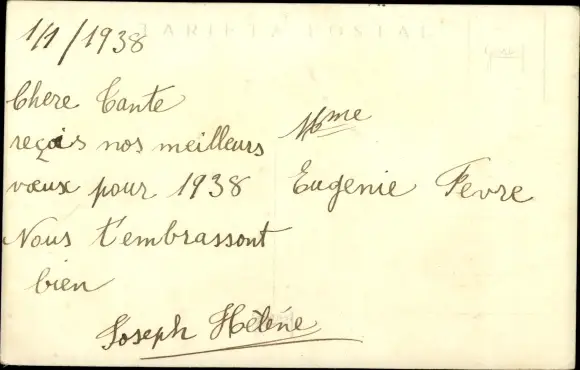 1/1/1938
TARJETA POSTAL
Chere Tante
reçois nos meilleurs
vœux pour 1938
Nous t'embrassont
bien
Joseph Hélène
Mme
Eugenie Fevre